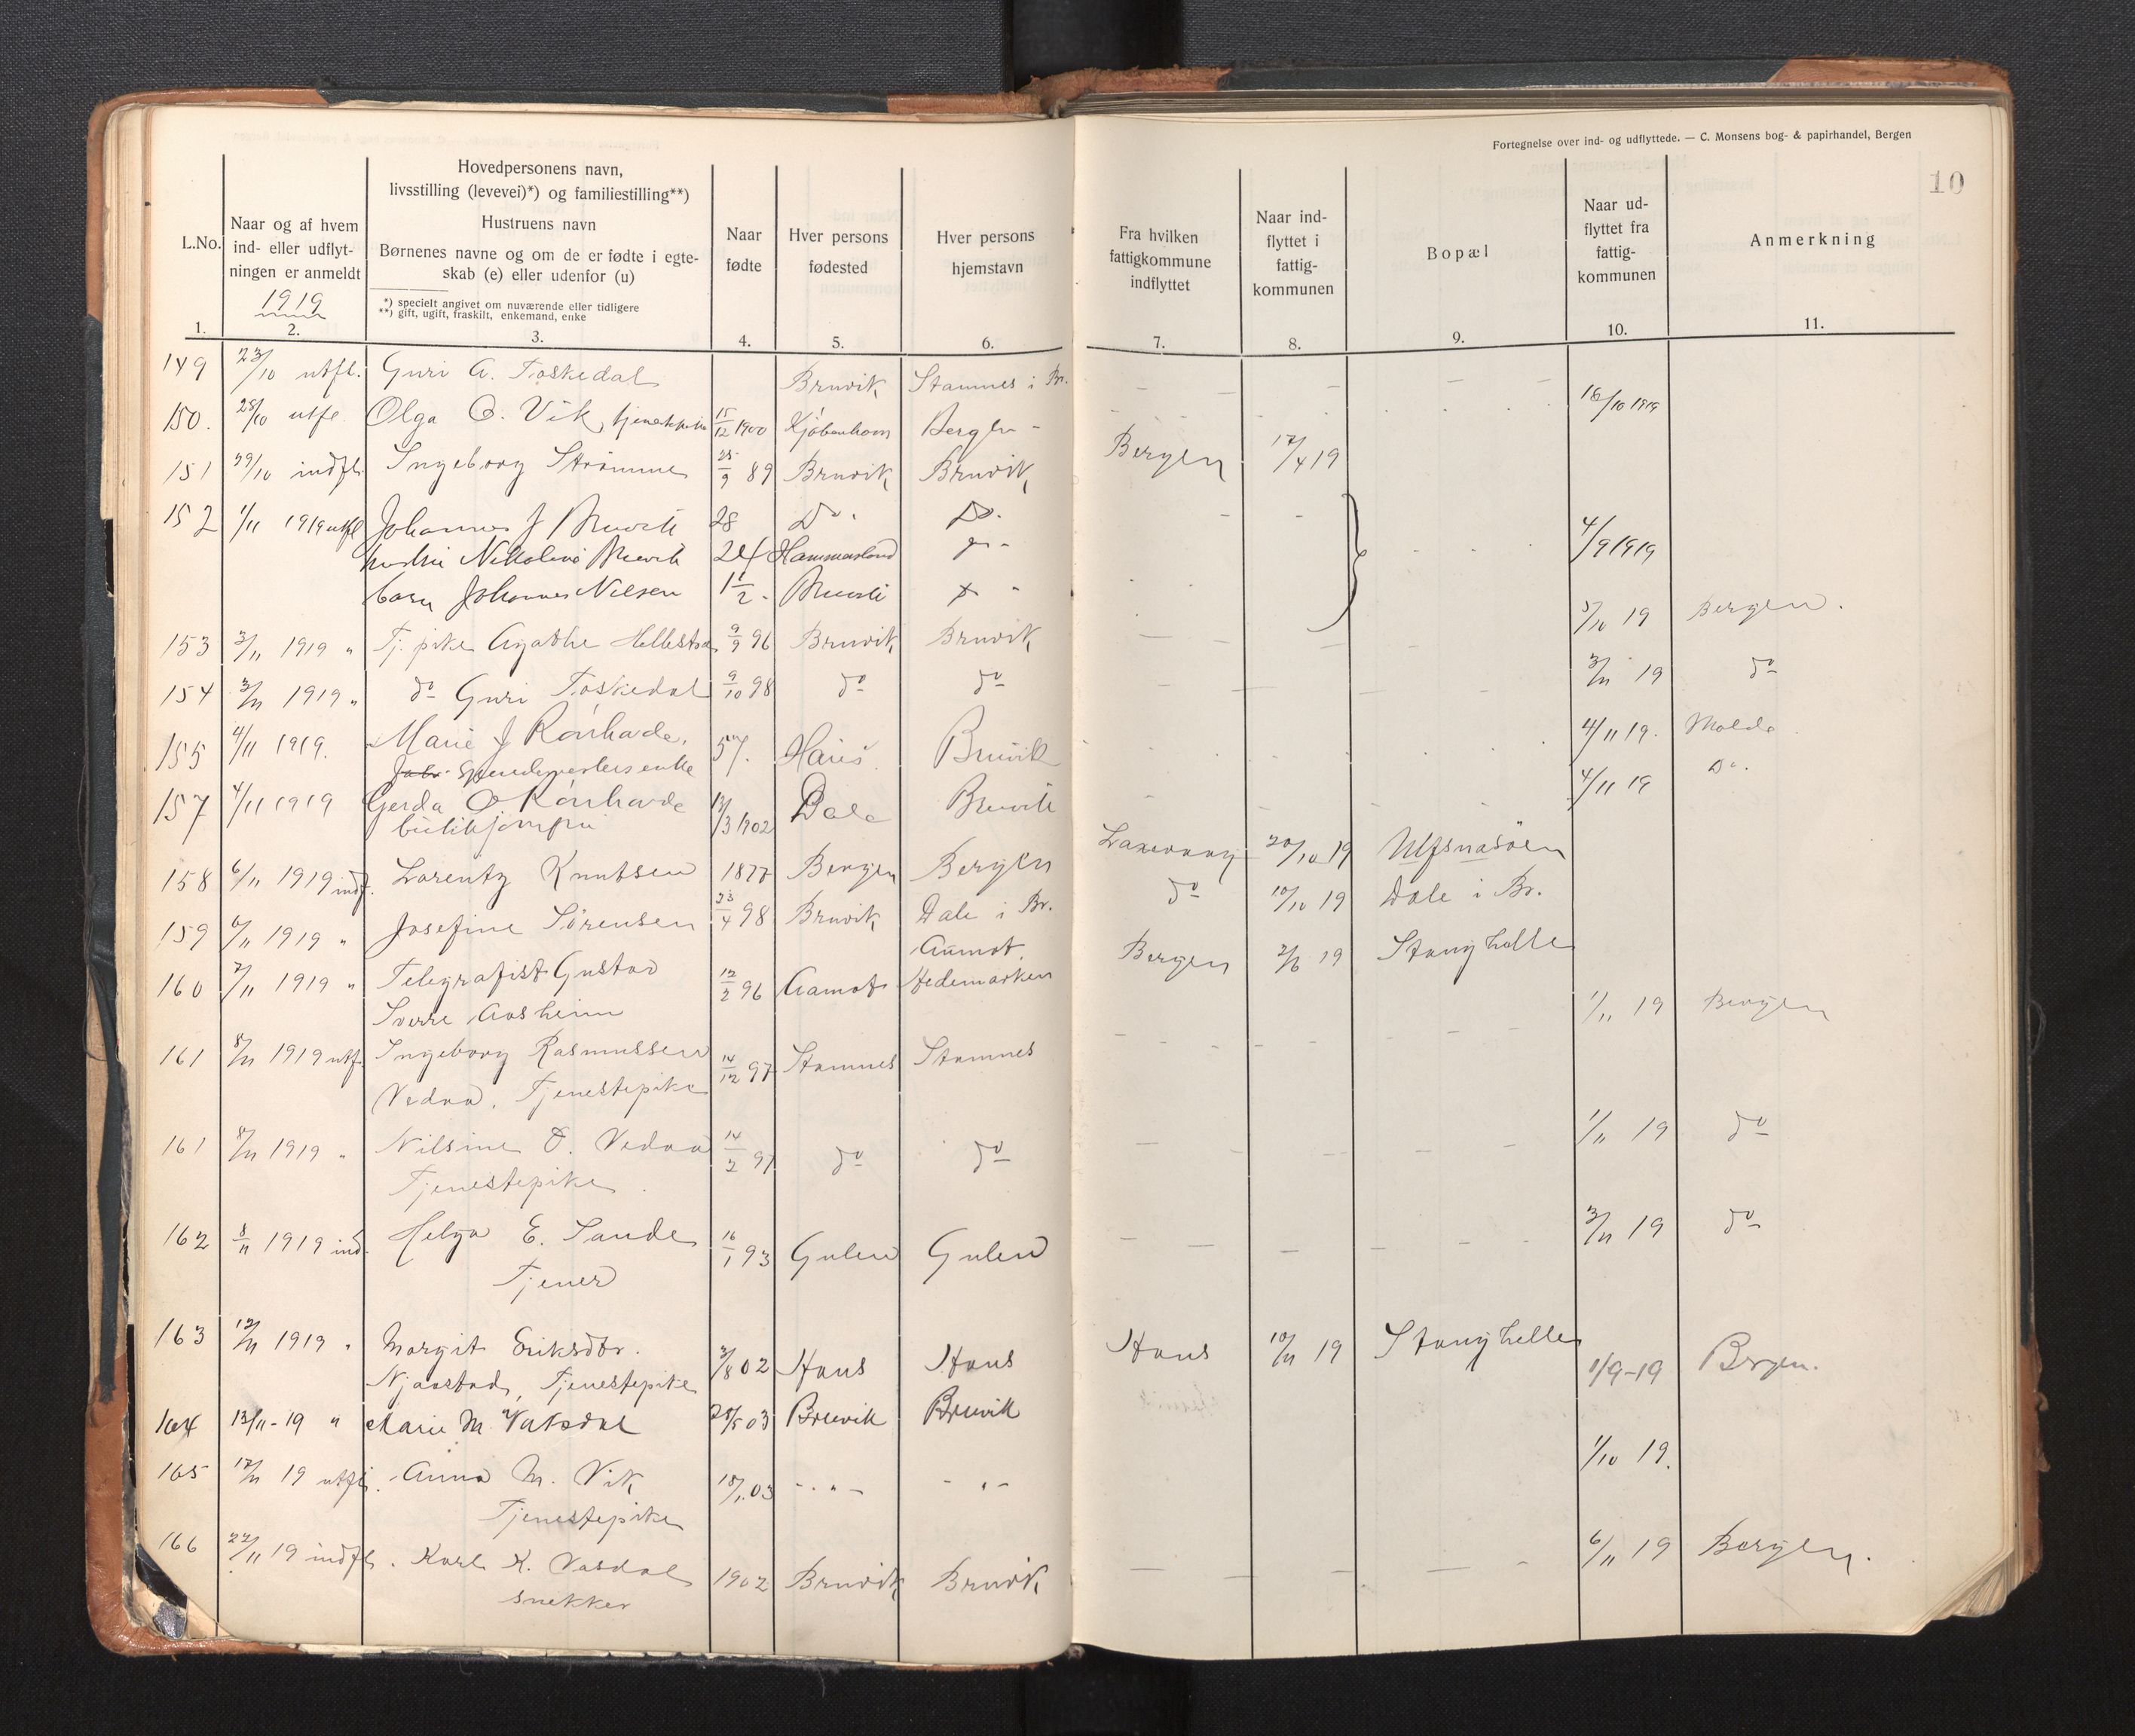 Fortegnelse over ind- og udflyttede. — C. Monsens bog- & papirhandel, Bergen
10
L.No.
Naar og af hvem
ind- eller udflyt-
ningen er anmeldt
1919
Hovedpersonens navn,
livsstilling (levevei)*) og familiestilling**)
Hustruens navn
Børnenes navne og om de er fødte i egte-
skab (e) eller udenfor (u)
*) specielt angivet om nuværende eller tidligere
**) gift, ugift, fraskilt, enkemand, enke
Naar
fødte
Hver persons
fødested
Hver persons
hjemstavn
Fra hvilken
fattigkommune
indflyttet
Naar ind-
flyttet i
fattig-
kommunen
Bopæl
Naar ud-
flyttet fra
fattig-
kommunen
Anmerkning
1. 2. 3. 4. 5. 6. 7. 8. 9. 10. 11.
149 23/10 utfl. Guri A. Toskedal Bruvik Stamnes i Br. — — — —
150. 28/10 utfl Olga O. Vik, 15/12 1900 Kjøbenhavn Bergen - 16/10 1919
151 29/10 indfl. Ingeborg Strømme 25/9 89 Bruvik Bruvik Bergen 17/4 19
152 1/11 1919 utfl Johannes J Bruvik 28 Do. Do. 4/9 1919
hustru Nikoline Bruvik 24 Hammersland
barn Johannes Nilsen 1 1/2 Bruvik
153 3/11 1919 " Tj. pike Agathe Hellestad 9/9 96 Bruvik Bruvik 5/10 19 Bergen.
154 3/11 1919 " do Guri Toskedal 9/10 98 do do 3/11 19 do
155 4/11 1919. Marie J Rønhovde, 57. Haus Bruvik 4/11 19. Molde
157 4/11 1919 Gerda O Rønhovde 13/3 1902 Dale Bruvik 4/11 19 Do.
butikjomfru
158 6/11 1919 indf. Lorentz Knutsen 1877 Bergen Bergen Laxevaag 20/10 19 Ulfsnesøen
159 6/11 1919 " Josefine Sørensen 23/4 98 Bruvik Dale i Br. do 10/10 19 Dale i Br.
160 7/11 1919 " Telegrafist Gustav 12/2 96 Aamot Aamot. Hedemarken Bergen 2/6 19 Stanghelle
Sverre Aasheim
161 8/11 1919 utf. Ingeborg Rasmussen 14/12 97 Stamnes Stamnes 1/11 19 Bergen
Vedaa, Tjenestepike
161 8/11 1919 " Nilsine O. Vedaa 14/2 97 do do 1/11 19 do
Tjenestepike
162 8/11 1919 ind. Helga E. Sande 16/1 93 Gulen Gulen 3/11 19 do
Tjener
163 12/11 1919 " Margit Eriksdtr. 3/8 02 Haus Haus Haus 10/11 19 Stanghelle
Njaastad, Tjenestepike
164 13/11-19 " Marie M. Vaksdal 28/5 03 Bruvik Bruvik 1/9-19 Bergen.
165 17/11 19 utfl. Anna M. Vik 18/1.03 - " - - " - 1/10 19.
Tjenestepike
166 22/11 19 indfl. Karl K. Vasdal 1902 Bruvik Bruvik 6/11 19 Bergen.
snekker